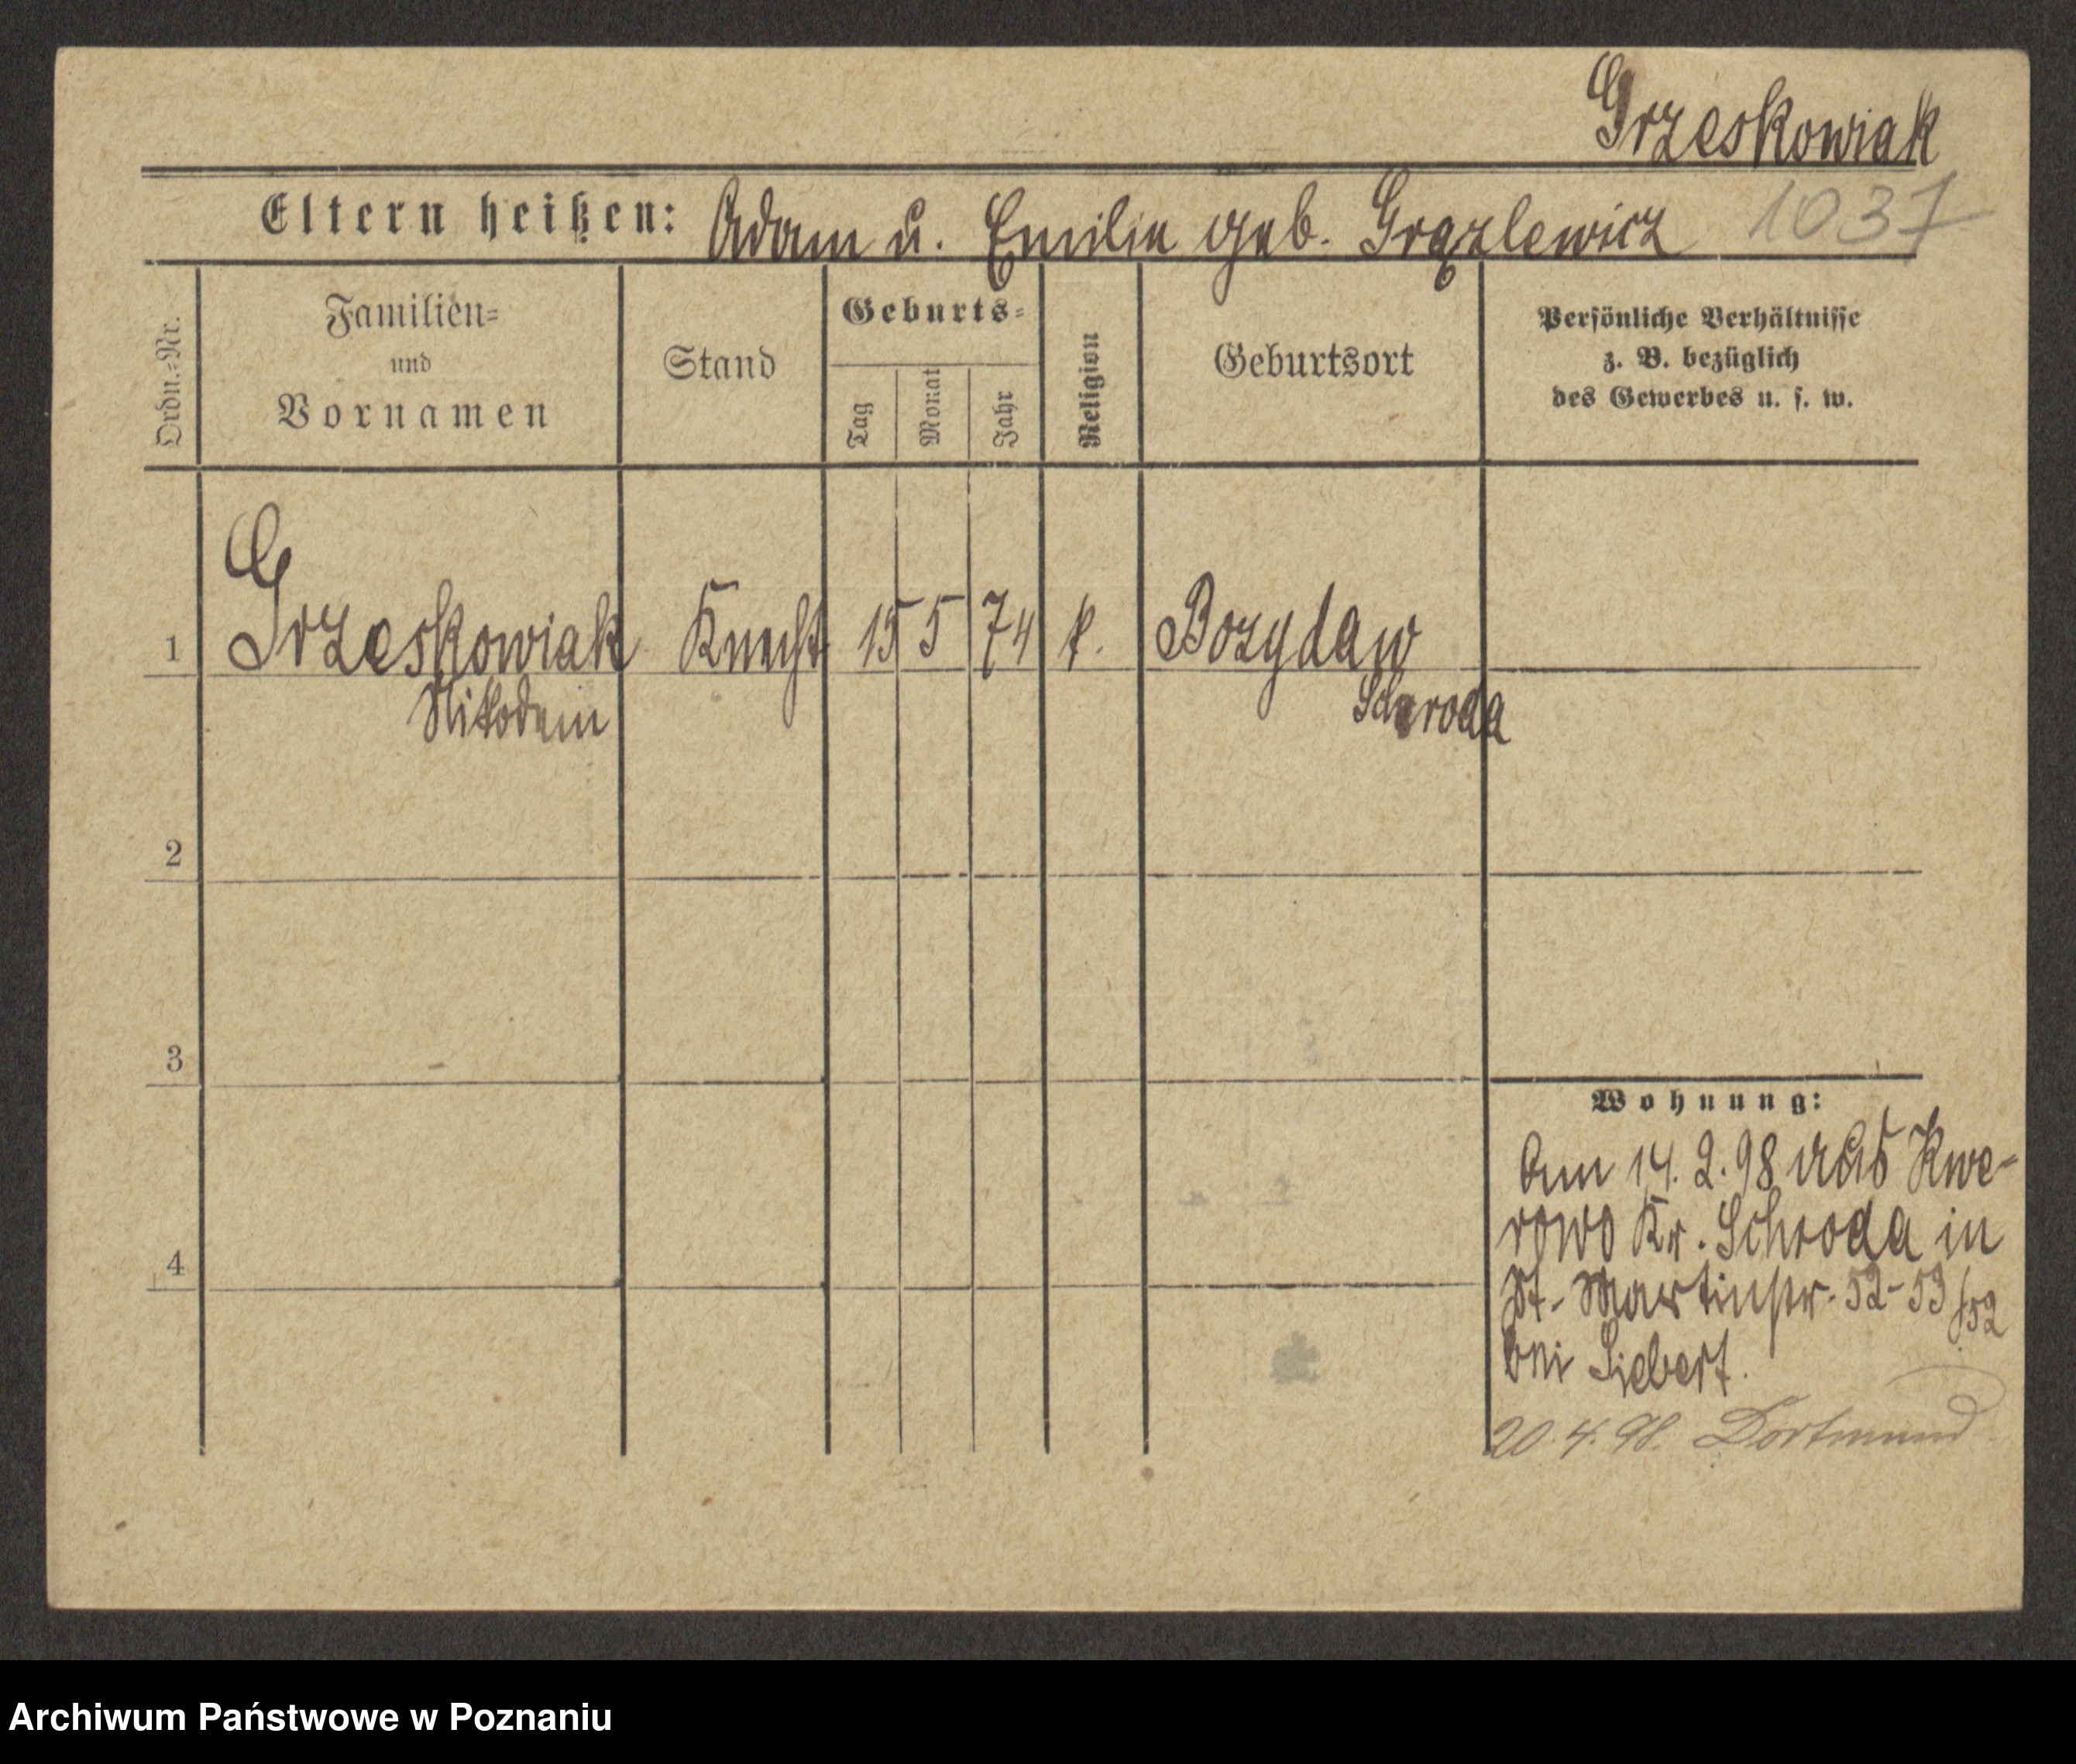 Grzeskowiak
Eltern heißen: Adam u. Emilie geb. Grązlewicz 1037
Ordn.-Nr.
Familien=
und
Vornamen
Stand
Geburts=
Tag
Monat
Jahr
Religion
Geburtsort
Persönliche Verhältnisse
z. B. bezüglich
des Gewerbes u. s. w.
1 Grzeskowiak Knecht 15 5 74 k. Bozydaw
Nikodem Schroda
2
3
4
Wohnung:
Am 14.2.98 aus Kwe-
rowo Kr. Schroda in
St. Martinstr. 52-53/52
bei Siebert.
20.4.98. Dortmund
Archiwum Państwowe w Poznaniu